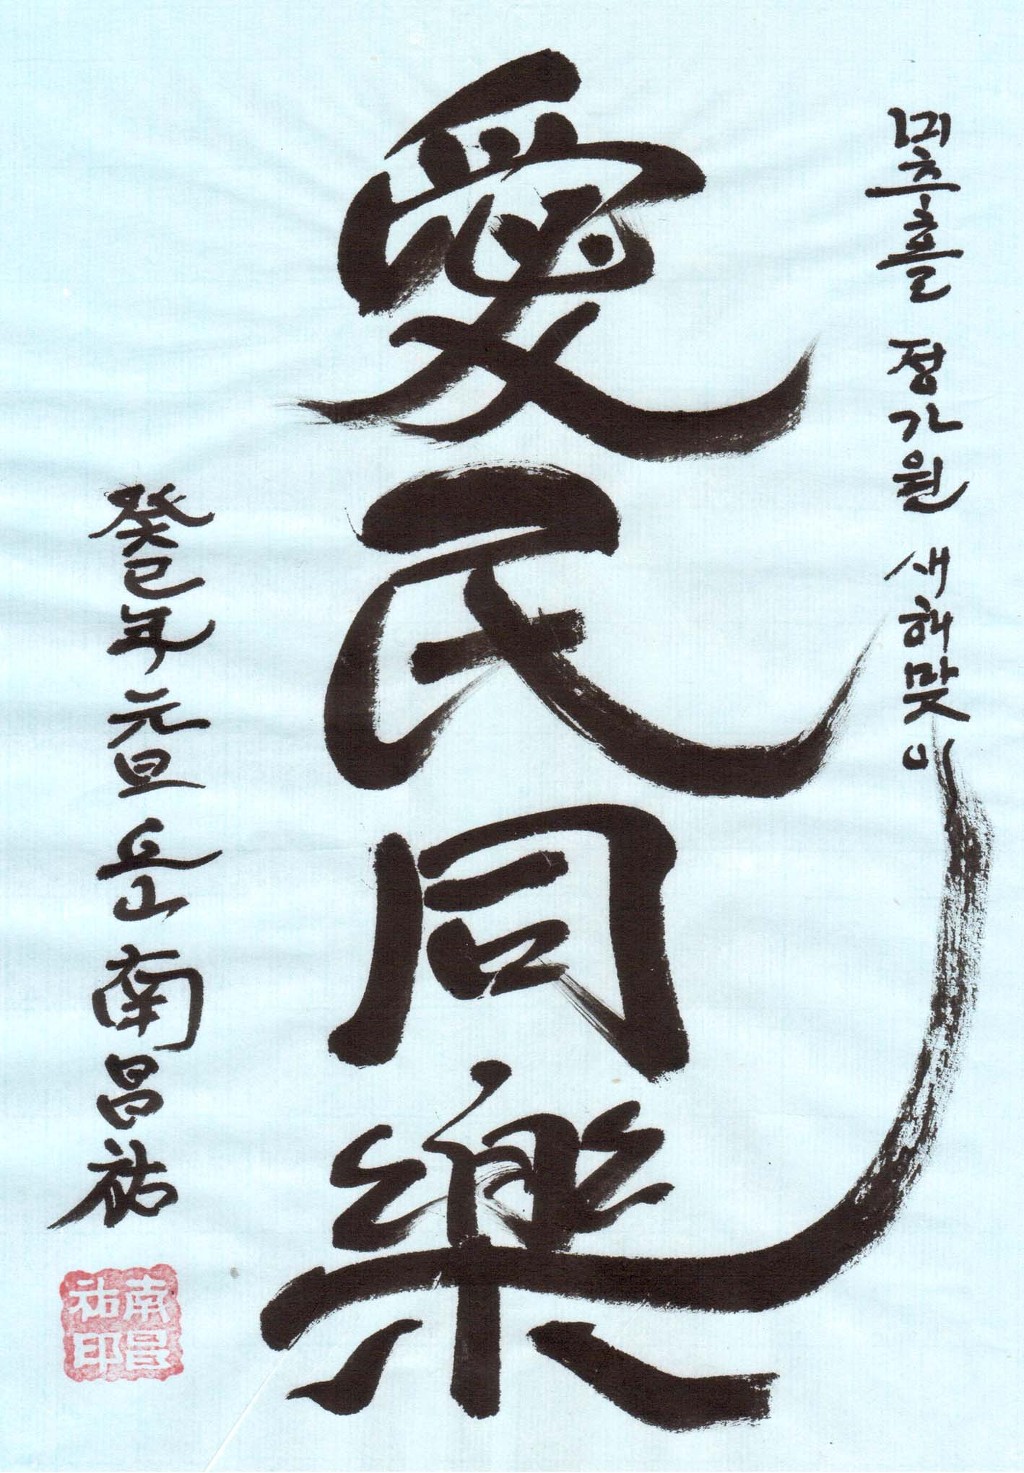 미추홀 정가원 새해맞이
愛民同樂
癸巳年 元旦 丘山 南昌祐
南昌祐印